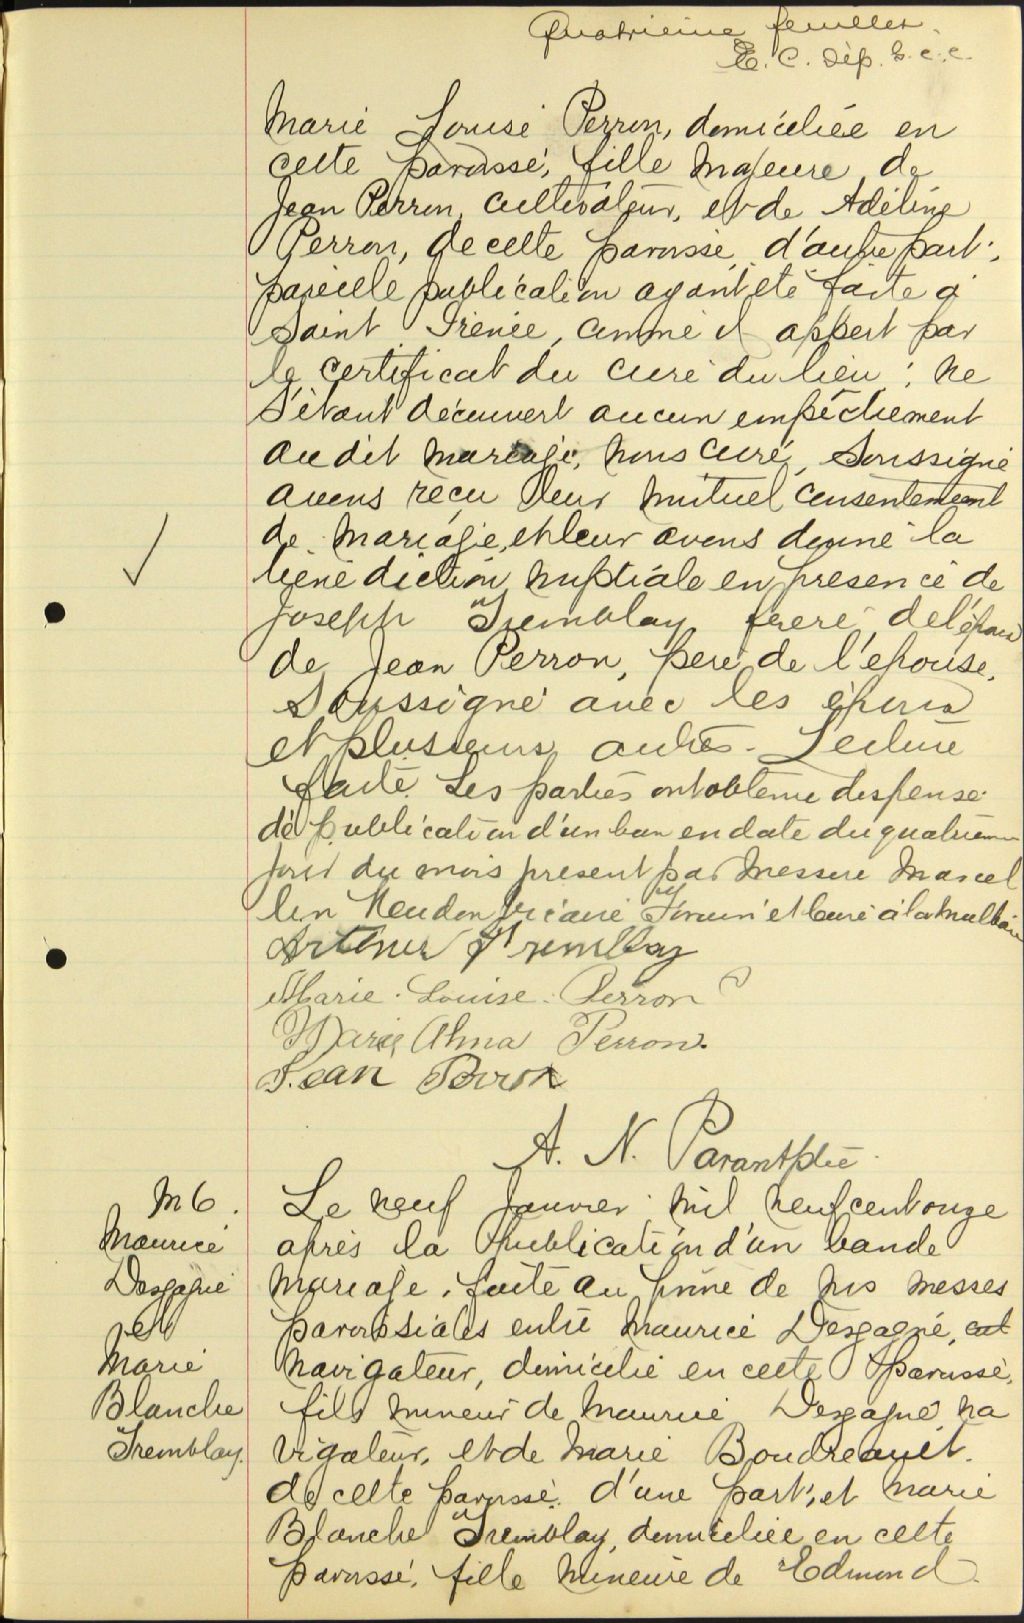 Quatrieme feuillet.
E. C. Dép. G. C. C.
Marie Louise Perron, domiciliée en
cette paroisse, fille majeure de
Jean Perron, cultivateur, et de Adéline
Perron, de cette paroisse, d'autre part;
pareille publication ayant été faite à
Saint Irénée, comme il appert par
le certificat du curé du lieu; ne
s'étant découvert aucun empêchement
au dit mariage, nous curé, soussigné
avons reçu leur mutuel consentement
de mariage, et leur avons donné la
bénédiction nuptiale en présence de
Joseph Tremblay frère de l'époux
de Jean Perron, père de l'épouse,
soussigné avec les époux
et plusieurs autres. Lecture
faite. Les parties ont obtenu dispense
de publication d'un ban en date du quatrième
jour du mois present par Messire Marcel
lin Hendon vicaire Forain et curé à la Malbaie
Arthur Tremblay
Marie. Louise. Perron
Marie Alma Perron.
Jean Perron
A. N. Parant Ptre
M 6.
Maurice
Desgagné
et
Marie
Blanche
Tremblay.
Le neuf Janvier mil neuf cent onze
après la publication d'un ban de
mariage, faite au prône de nos messes
paroissiales entre Maurice Desgagné, cul
navigateur, domicilié en cette paroisse,
fils mineur de Maurice Desgagné na
vigateur, et de Marie Boudreault
de cette paroisse d'une part, et Marie
Blanche Tremblay, domiciliée en cette
paroisse, fille mineure de Edmond